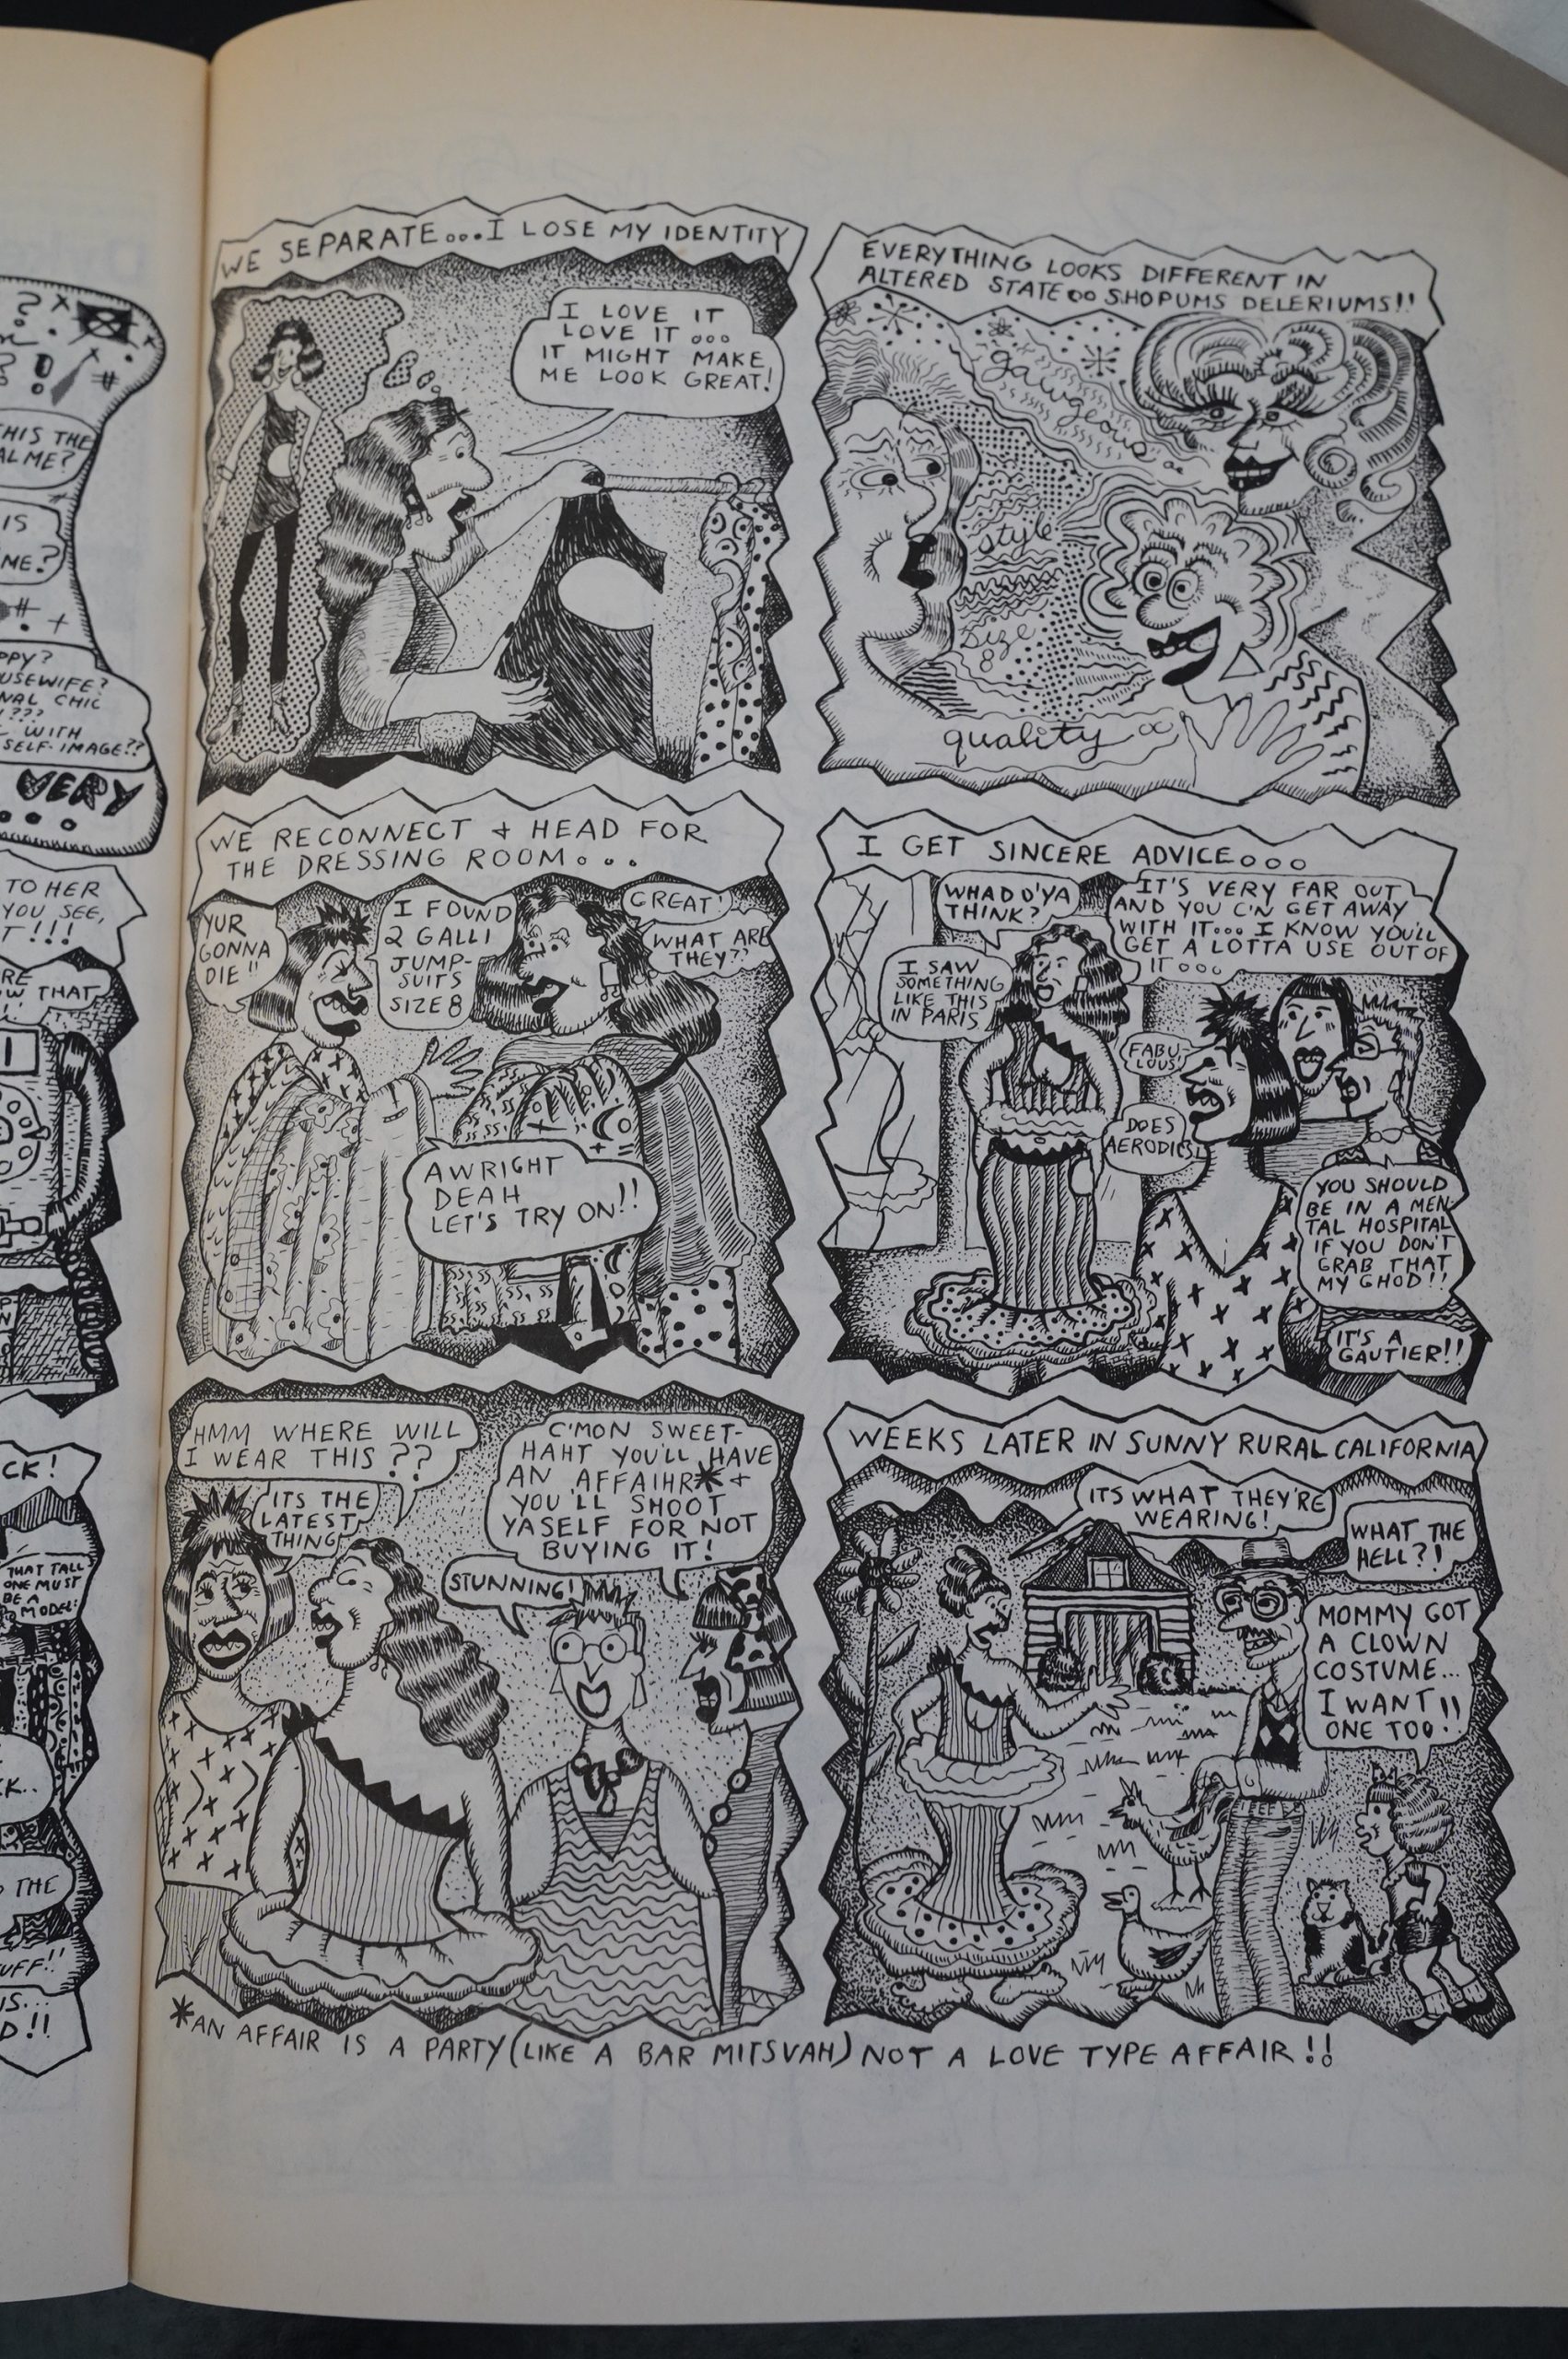 THIS THE
AL ME?
IS
ME?
PPY?
USEWIFE?
NAL CHIC
!???
WITH
SELF-IMAGE??
VERY
TO HER
YOU SEE,
T!!!
RE
W THAT
CK!
THAT TALL
ONE MUST
BE A
MODEL!
CK..
THE
UFF!!
IS...
D!!
WE SEPARATE...I LOSE MY IDENTITY
I LOVE IT
LOVE IT...
IT MIGHT MAKE
ME LOOK GREAT!
EVERYTHING LOOKS DIFFERENT IN
ALTERED STATE oo SHOPUMS DELERIUMS!!
gawgeous
style
size
8
quality
WE RECONNECT + HEAD FOR
THE DRESSING ROOM...
YUR
GONNA
DIE!!
I FOUND
2 GALLI
JUMP-
SUITS
SIZE 8
GREAT!
WHAT ARE
THEY??
AWRIGHT
DEAH
LET'S TRY ON!!
I GET SINCERE ADVICE...
WHAD D'YA
THINK?
IT'S VERY FAR OUT
AND YOU C'N GET AWAY
WITH IT... I KNOW YOU'LL
GET A LOTTA USE OUT OF
IT...
I SAW
SOMETHING
LIKE THIS
IN PARIS
FABU-
LOUS!
DOES
AERODICS!
YOU SHOULD
BE IN A MEN
TAL HOSPITAL
IF YOU DON'T
GRAB THAT
MY GHOD!!
IT'S A
GAUTIER!!
HMM WHERE WILL
I WEAR THIS??
ITS THE
LATEST
THING
C'MON SWEET-
HAHT YOU'LL HAVE
AN AFFAIHR* +
YOU'LL SHOOT
YASELF FOR NOT
BUYING IT!
STUNNING!
WEEKS LATER IN SUNNY RURAL CALIFORNIA
ITS WHAT THEY'RE
WEARING!
WHAT THE
HELL?!
MOMMY GOT
A CLOWN
COSTUME...
I WANT
ONE TOO!!
*AN AFFAIR IS A PARTY (LIKE A BAR MITSVAH) NOT A LOVE TYPE AFFAIR!!